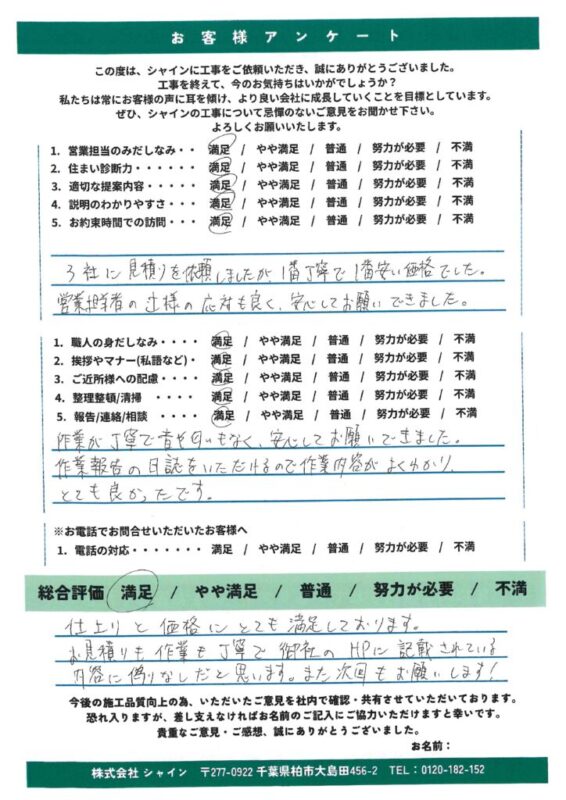 お客様アンケート
この度は、シャインに工事をご依頼いただき、誠にありがとうございました。
工事を終えて、今のお気持ちはいかがでしょうか?
私たちは常にお客様の声に耳を傾け、より良い会社に成長していくことを目標としています。
ぜひ、シャインの工事について忌憚のないご意見をお聞かせ下さい。
よろしくお願いいたします。
1. 営業担当のみだしなみ・・ 満足 / やや満足 / 普通 / 努力が必要 / 不満
2. 住まい診断力・・・・・・ 満足 / やや満足 / 普通 / 努力が必要 / 不満
3. 適切な提案内容・・・・・ 満足 / やや満足 / 普通 / 努力が必要 / 不満
4. 説明のわかりやすさ・・・ 満足 / やや満足 / 普通 / 努力が必要 / 不満
5. お約束時間での訪問・・・ 満足 / やや満足 / 普通 / 努力が必要 / 不満
3社に見積りを依頼しましたが、1番丁寧で1番安い価格でした。
営業担当者の辻様の応対も良く、安心してお願いできました。
1. 職人の身だしなみ・・・・ 満足 / やや満足 / 普通 / 努力が必要 / 不満
2. 挨拶やマナー(私語など)・ 満足 / やや満足 / 普通 / 努力が必要 / 不満
3. ご近所様への配慮・・・・ 満足 / やや満足 / 普通 / 努力が必要 / 不満
4. 整理整頓/清掃 ・・・・ 満足 / やや満足 / 普通 / 努力が必要 / 不満
5. 報告/連絡/相談 ・・・・ 満足 / やや満足 / 普通 / 努力が必要 / 不満
作業が丁寧で音や匂いもなく、安心してお願いできました。
作業報告の日誌をいただけるので作業内容がよくわかり、
とても良かったです。
※お電話でお問合せいただいたお客様へ
1. 電話の対応・・・・・・・ 満足 / やや満足 / 普通 / 努力が必要 / 不満
総合評価 満足 / やや満足 / 普通 / 努力が必要 / 不満
仕上りと価格にとても満足しております。
お見積りも作業も丁寧で御社のHPに記載されている
内容に偽りなしだと思います。また次回もお願いします!
今後の施工品質向上の為、いただいたご意見を社内で確認・共有させていただいております。
恐れ入りますが、差し支えなければお名前のご記入にご協力いただけますと幸いです。
貴重なご意見・ご感想、誠にありがとうございました。
お名前:
株式会社 シャイン 〒277-0922 千葉県柏市大島田456-2 TEL:0120-182-152